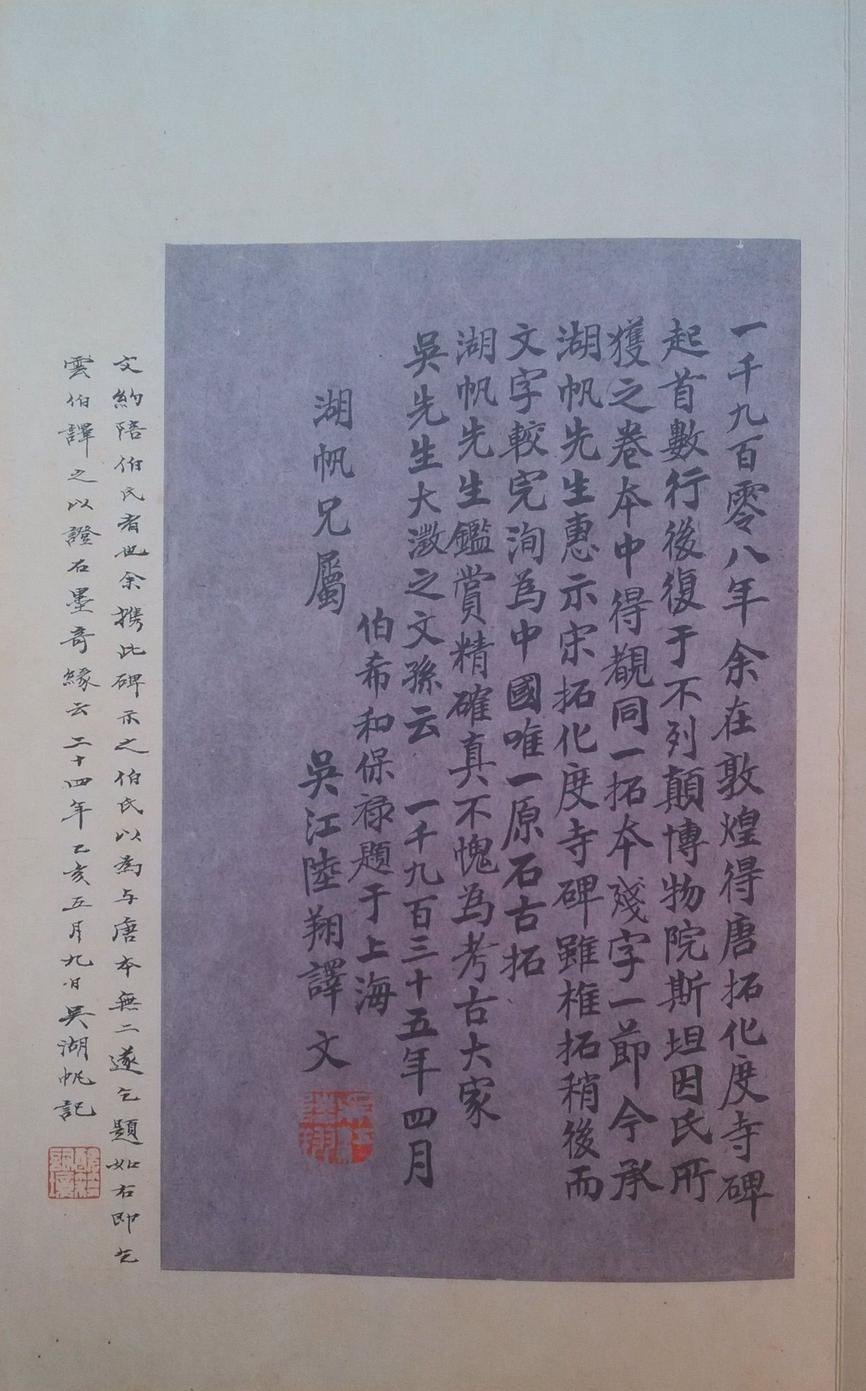 一千九百零八年余在敦煌得唐拓化度寺碑
起首數行後復于不列顛博物院斯坦因氏所
獲之卷本中得覩同一拓本殘字一節今承
湖帆先生惠示宋拓化度寺碑雖椎拓稍後而
文字較完洵為中國唯一原石古拓
湖帆先生鑑賞精確真不愧為考古大家
吳先生大澂之文孫云 一千九百三十五年四月
伯希和保祿題于上海
湖帆兄屬 吳江陸翔譯文
文約陪伯氏者也余攜此碑示之伯氏以為與唐本無二遂乞題如右即乞
雲伯譯之以證石墨奇緣云二十四年乙亥五月九日吳湖帆記